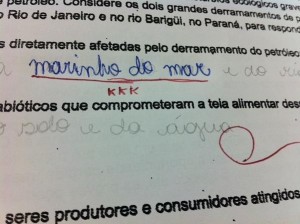 petróleo. Considere os dois grandes derramamentos de p
o Rio de Janeiro e no rio Barigüi, no Paraná, para respond
s diretamente afetadas pelo derramamento do petróleo
a marinho do mar e do ri
KKK
abióticos que comprometeram a teia alimentar des
o solo e da água
seres produtores e consumidores atingidos